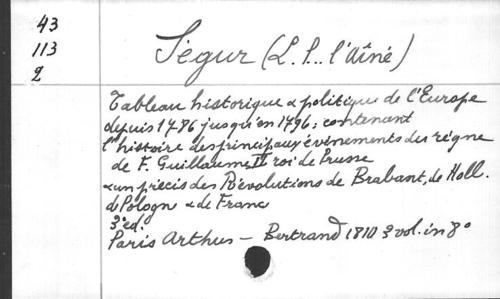 43
113
2
Ségur (L. P... l'aîné)
Tableau historique & politique de l'Europe
depuis 1786 jusqu'en 1796; contenant
l'histoire des principaux événements du règne
de F. Guillaume II roi de Prusse
& un précis des Révolutions de Brabant, de Holl.
de Pologn & de Franc
3e ed.
Paris Arthus - Bertrand 1810 3 vol. in 8°